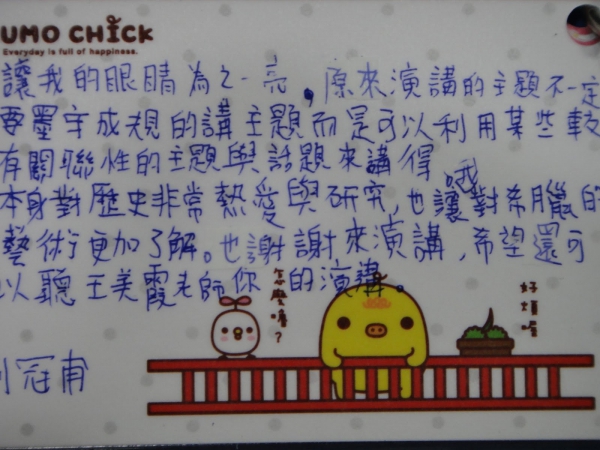 UMO CHICK
Everyday is full of happiness.
讓我的眼睛為之一亮,原來演講的主題不一定
要墨守成規的講主題而是可以利用某些較
有關聯性的主題與話題來講得
本身對歷史非常熱愛與研究,也讓我對希臘的
藝術更加了解。也謝謝來演講,希望還可
以聽王美霞老師你的演講。
怎麼嚕?
好煩喔
冠甫